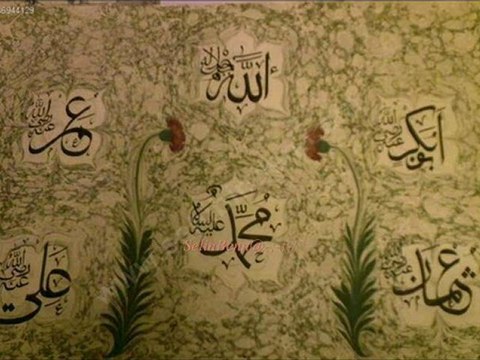 6944129
الله جل جلاله
ابوبكر رضي الله عنه
عمر رضي الله عنه
محمد عليه السلام
عثمان رضي الله عنه
علي رضي الله عنه